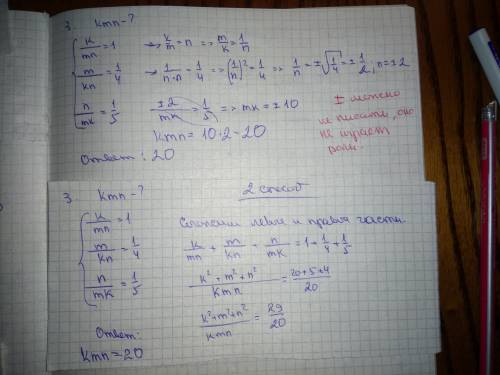 3. kmn-?
{ k/mn = 1 → k/m = n => m/k = 1/n
m/kn = 1/4 → 1/n·n = 1/4 => (1/n)² = 1/4 => 1/n = ±√1/4 = ± 1/2; n = ±2
n/mk = 1/5 ±2/mk = 1/5 => mk = ±10
kmn = 10·2 = 20
Ответ: 20
± можно
не писать, оно
не играет
роли.
3. kmn-?
2 способ
{ k/mn = 1
m/kn = 1/4
n/mk = 1/5
Сложим левые и правые части.
k/mn + m/kn + n/mk = 1 + 1/4 + 1/5
k² + m² + n²/kmn = 20+5+4/20
k²+m²+n²/kmn = 29/20
Ответ:
kmn = 20